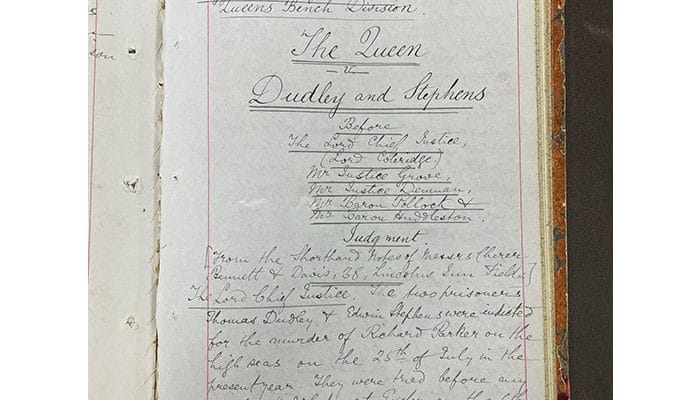 Queens Bench Division.
The Queen
v
Dudley and Stephens
Before
The Lord Chief Justice,
(Lord Coleridge.)
Mr Justice Grove,
Mr Justice Denman,
Mr Baron Pollock &
Mr Baron Huddleston.
Judgment
[From the Shorthand Notes of Messrs Cherer
Bennett & Davis, 8, Lincolns Inn Fields]
The Lord Chief Justice. The two prisoners
Thomas Dudley & Edwin Stephens were indicted
for the murder of Richard Parker on the
high seas on the 25th of July in the
present year. They were tried before my